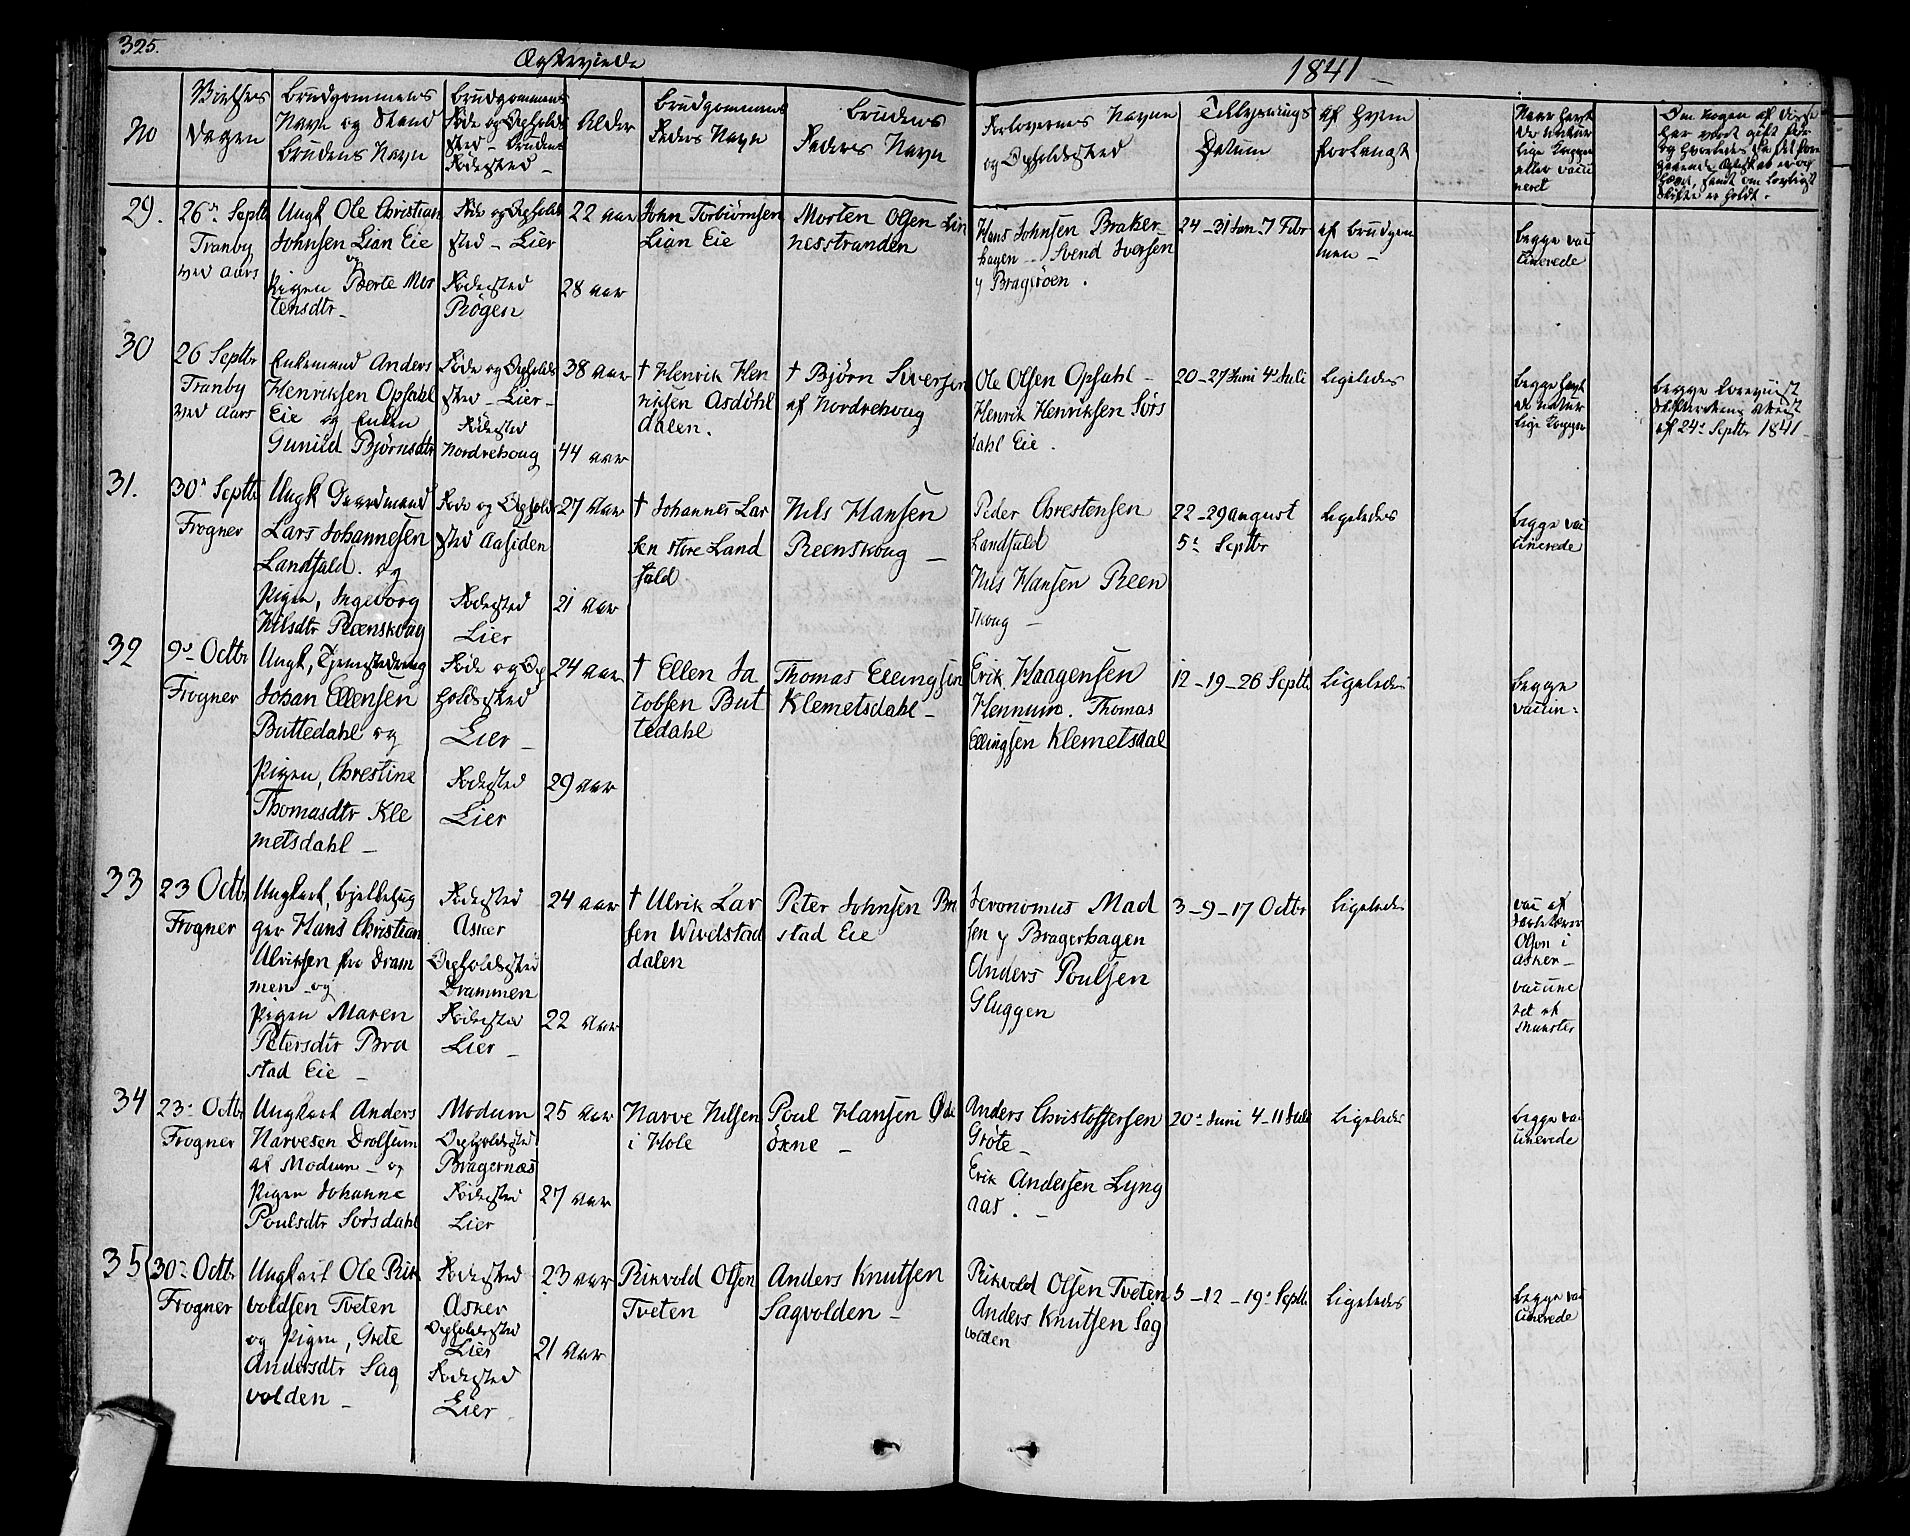 325.
Ægteviede
1841 –
No
Vielses
Dagen
Brudgommens
Navn og Stand
Brudens Navn
Brudgommens
Føde og Ophold
sted – Brudens
Fødested –
Alder
Brudgommens
Faders Navn
Brudens
Faders Navn
Forlovernes Navne
og Opholdssted
Tillysnings
Datum
af Hvem
forlangt
Naar havt
de natur
lige Kopper
eller vacci
neret
Om Nogen af disse
har været gift før
29.
26de Septbr
Tranby
ved Aars
Ungk Ole Christian
Johnsen Lian Eie
og
Pigen Berte Mor
tensdtr –
Føde og Ophold
sted – Lier
Fødested
Røgen
22 aar
28 aar
John Torbiørnsen
Lian Eie
Morten Olsen Lin
nesstranden
Hans Johnsen Braker
hagen – Svend Iversen
y Bragerøen .
24 – 31 Jan – 7 Febr
af brudgom
men –
begge vac
cinerede
30
26 Septbr
Tranby
ved Aars
Enkemand Anders
Henriksen Opsahl
Eie og Enken
Gunild Bjørnsdtr
Føde og Opholds
sted – Lier –
Fødested
Nordrehoug
38 aar
44 aar
† Henrik Hen
riksen Asdöhl
dalen .
† Bjørn Siversen
af Nordrehoug
Ole Olsen Opsahl –
Henrik Henriksen Sørs
dahl Eie .
20 – 27 Juni 4de Juli
Ligeledes
begge havt
de natur
lige Kopper
begge bevist
af 24de Septbr 1841
31.
30te Septbr
Frogner
Ungk Gaardmand
Lars Johannesen
Landfald . og
Pigen, Ingeborg
Nilsdtr Reenskoug
Føde og Ophold
sted Aasiden
Fødested
Lier
27 aar
21 aar
† Johannes Lar
sen store Land
fald
Nils Hansen
Reenskoug –
Peder Chrestensen
Landfald
Nils Hansen Reen
skoug –
22 – 29 august
5te Septbr
Ligeledes
begge vac
cinerede
32
9de Octbr
Frogner
Ungk, Tjenestedreng
Johan Ellensen
Buttedahl og
Pigen, Chrestine
Thomasdtr Kle
metsdahl –
Føde og Op
holdssted
Lier –
Fødested
Lier
24 aar
29 aar
† Ellen Ja
cobsen But
tedahl
Thomas Ellingsen
Klemetsdahl –
Erik Haagensen
Hennum . Thomas
Ellingsen Klemetsdal
12 – 19 – 26 Septbr
Ligeledes
begge
vaccin:
33
23 Octbr
Frogner
Ungkarl, bjelkehug
ger Hans Christian
Ulriksen fra Dram
men – og
Pigen Maren
Petersdtr Bra
stad Eie –
Fødested
Asker
Opholdssted
Drammen
Fødested
Lier –
24 aar
22 aar
† Ulrik Lar
sen Wivelstad
dalen
Peter Johnsen Bra
stad Eie
Jeronomus Mad
sen y Bragerhagen
Anders Poulsen
Gluggen
3 – 9 – 17 Octbr
Ligeledes
vac af
Olsen i
Asker –
vaccine
ret af
Munster
34
23de Octbr
Frogner
Ungkarl Anders
Narvesen Drolsum
af Modum – og
Pigen Johanne
Poulsdtr Sørsdahl
Modum
Opholdssted
Bragernæs
Fødested
Lier
25 aar
27 aar
Narve Nilsen
i Hole
Poul Hansen Øde
øxne –
Anders Christoffersen
Grøte –
Erik Andersen Lyng
aas . –
20de Juni 4 – 11 Juli
Ligeledes
begge vac
cinerede
35
30te Octbr
Frogner
Ungkarl Ole Rik
voldsen Tveten
og Pigen, Grete
Andersdtr Sag
volden –
Fødested
Asker
Opholdssted
Lier
Fødested
Lier
23 aar
21 aar
Rikvold Olsen
Tveten
Anders Knutsen
Sagvolden –
Rikvold Olsen Tveten
Anders Knutsen Sag
volden
5 – 12 – 19de Septbr
Ligeledes
begge vac
cinerede